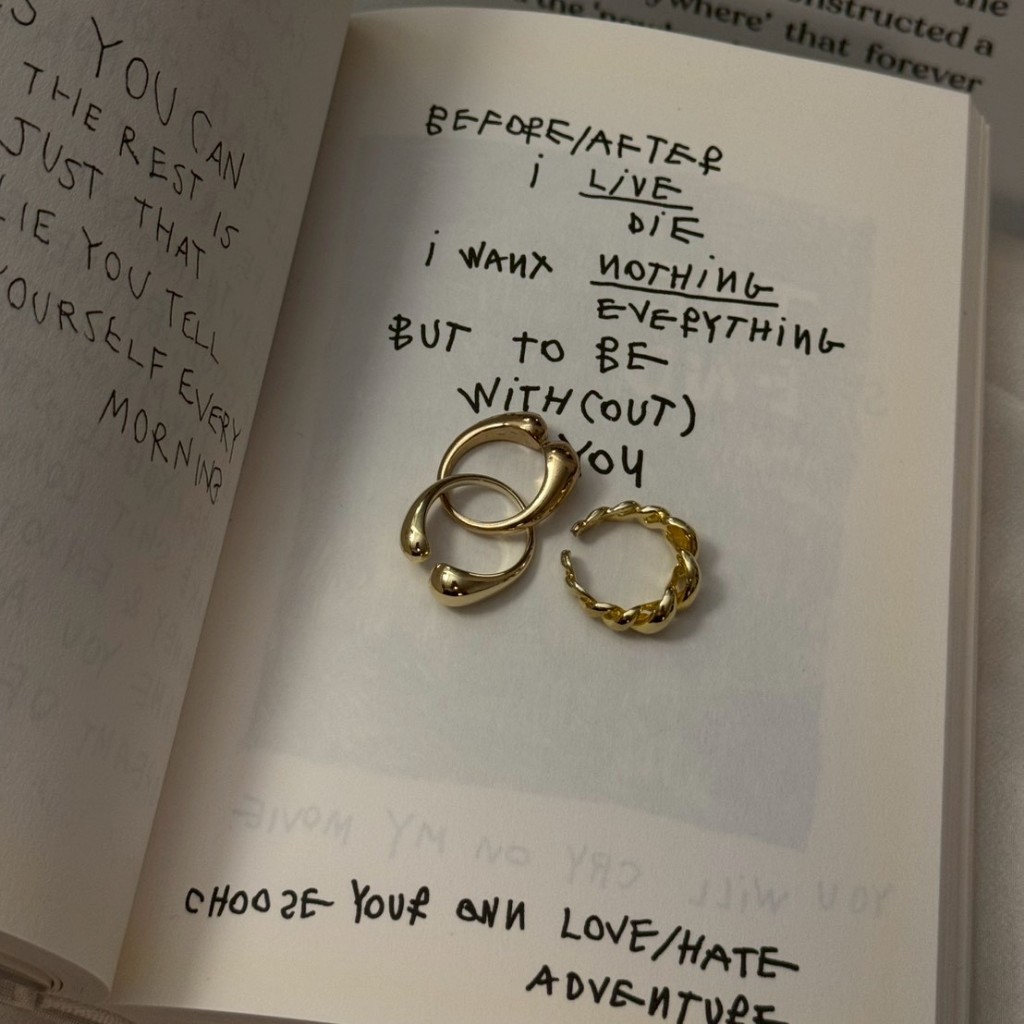 YOU CAN
THE REST IS
JUST THAT
LIE YOU TELL
YOURSELF EVERY
MORNING
BEFORE/AFTER
i LiVE
DiE
i WANT NOTHiNG
EVERYTHiNG
BUT TO BE
WiTH(OUT)
YOU
CHOOSE YOUR OWN LOVE/HATE
ADVENTURE
YOU WiLL CRY ON MY MOVIE
the
constructed a
that forever